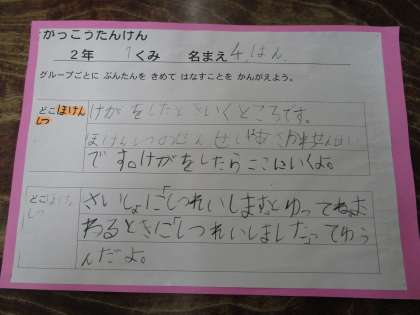 がっこうたんけん
2年 1くみ 名まえ 4はん
グループごとに ぶんたんを きめて はなすことを かんがえよう。
どこ ほけんしつ
けがをしたときいくところです。
ほけんしつの
です。けがをしたらここにいくよ。
どこ ほけんしつ
さいしょに「しつれいします」とゆってね。
わるときに「しつれいしました」ってゆう
んだよ。